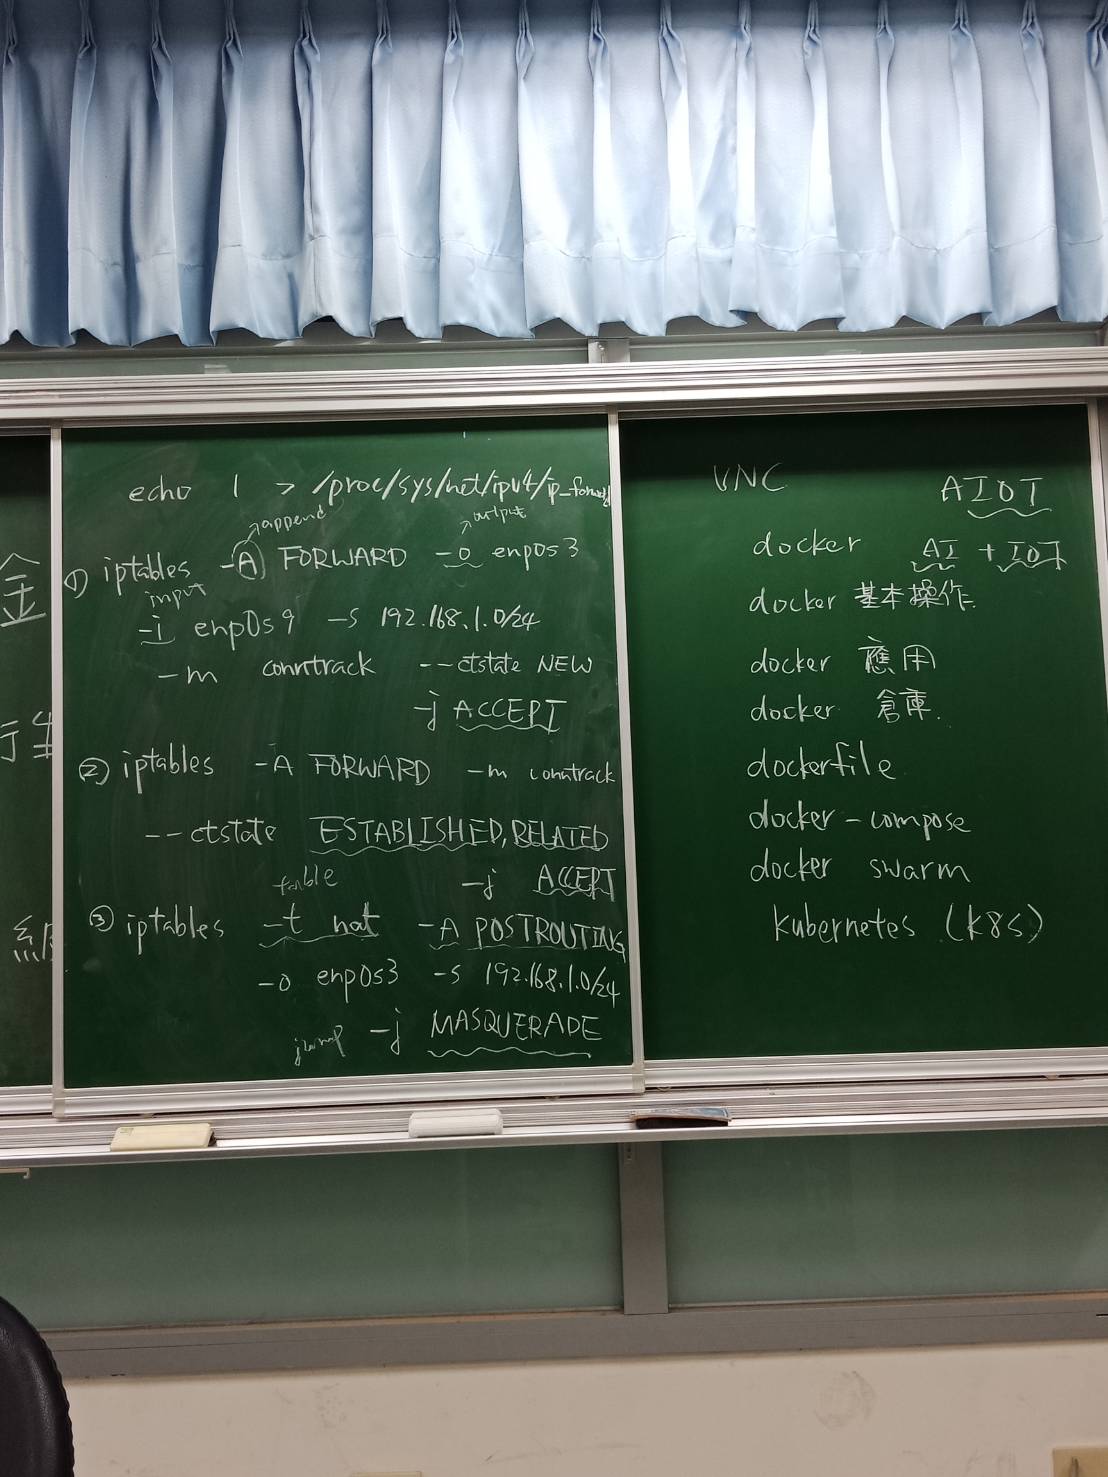 echo 1 > /proc/sys/net/ipv4/ip_forward
append
output
① iptables -A FORWARD -o enp0s3
input
-i enp0s9 -s 192.168.1.0/24
-m conntrack --ctstate NEW
-j ACCEPT
② iptables -A FORWARD -m conntrack
--ctstate ESTABLISHED,RELATED
-j ACCEPT
table
③ iptables -t nat -A POSTROUTING
-o enp0s3 -s 192.168.1.0/24
jump -j MASQUERADE
VNC
AIOT
docker
AI + IOT
docker 基本操作.
docker 應用
docker 倉庫.
dockerfile
docker-compose
docker swarm
kubernetes (k8s)
金